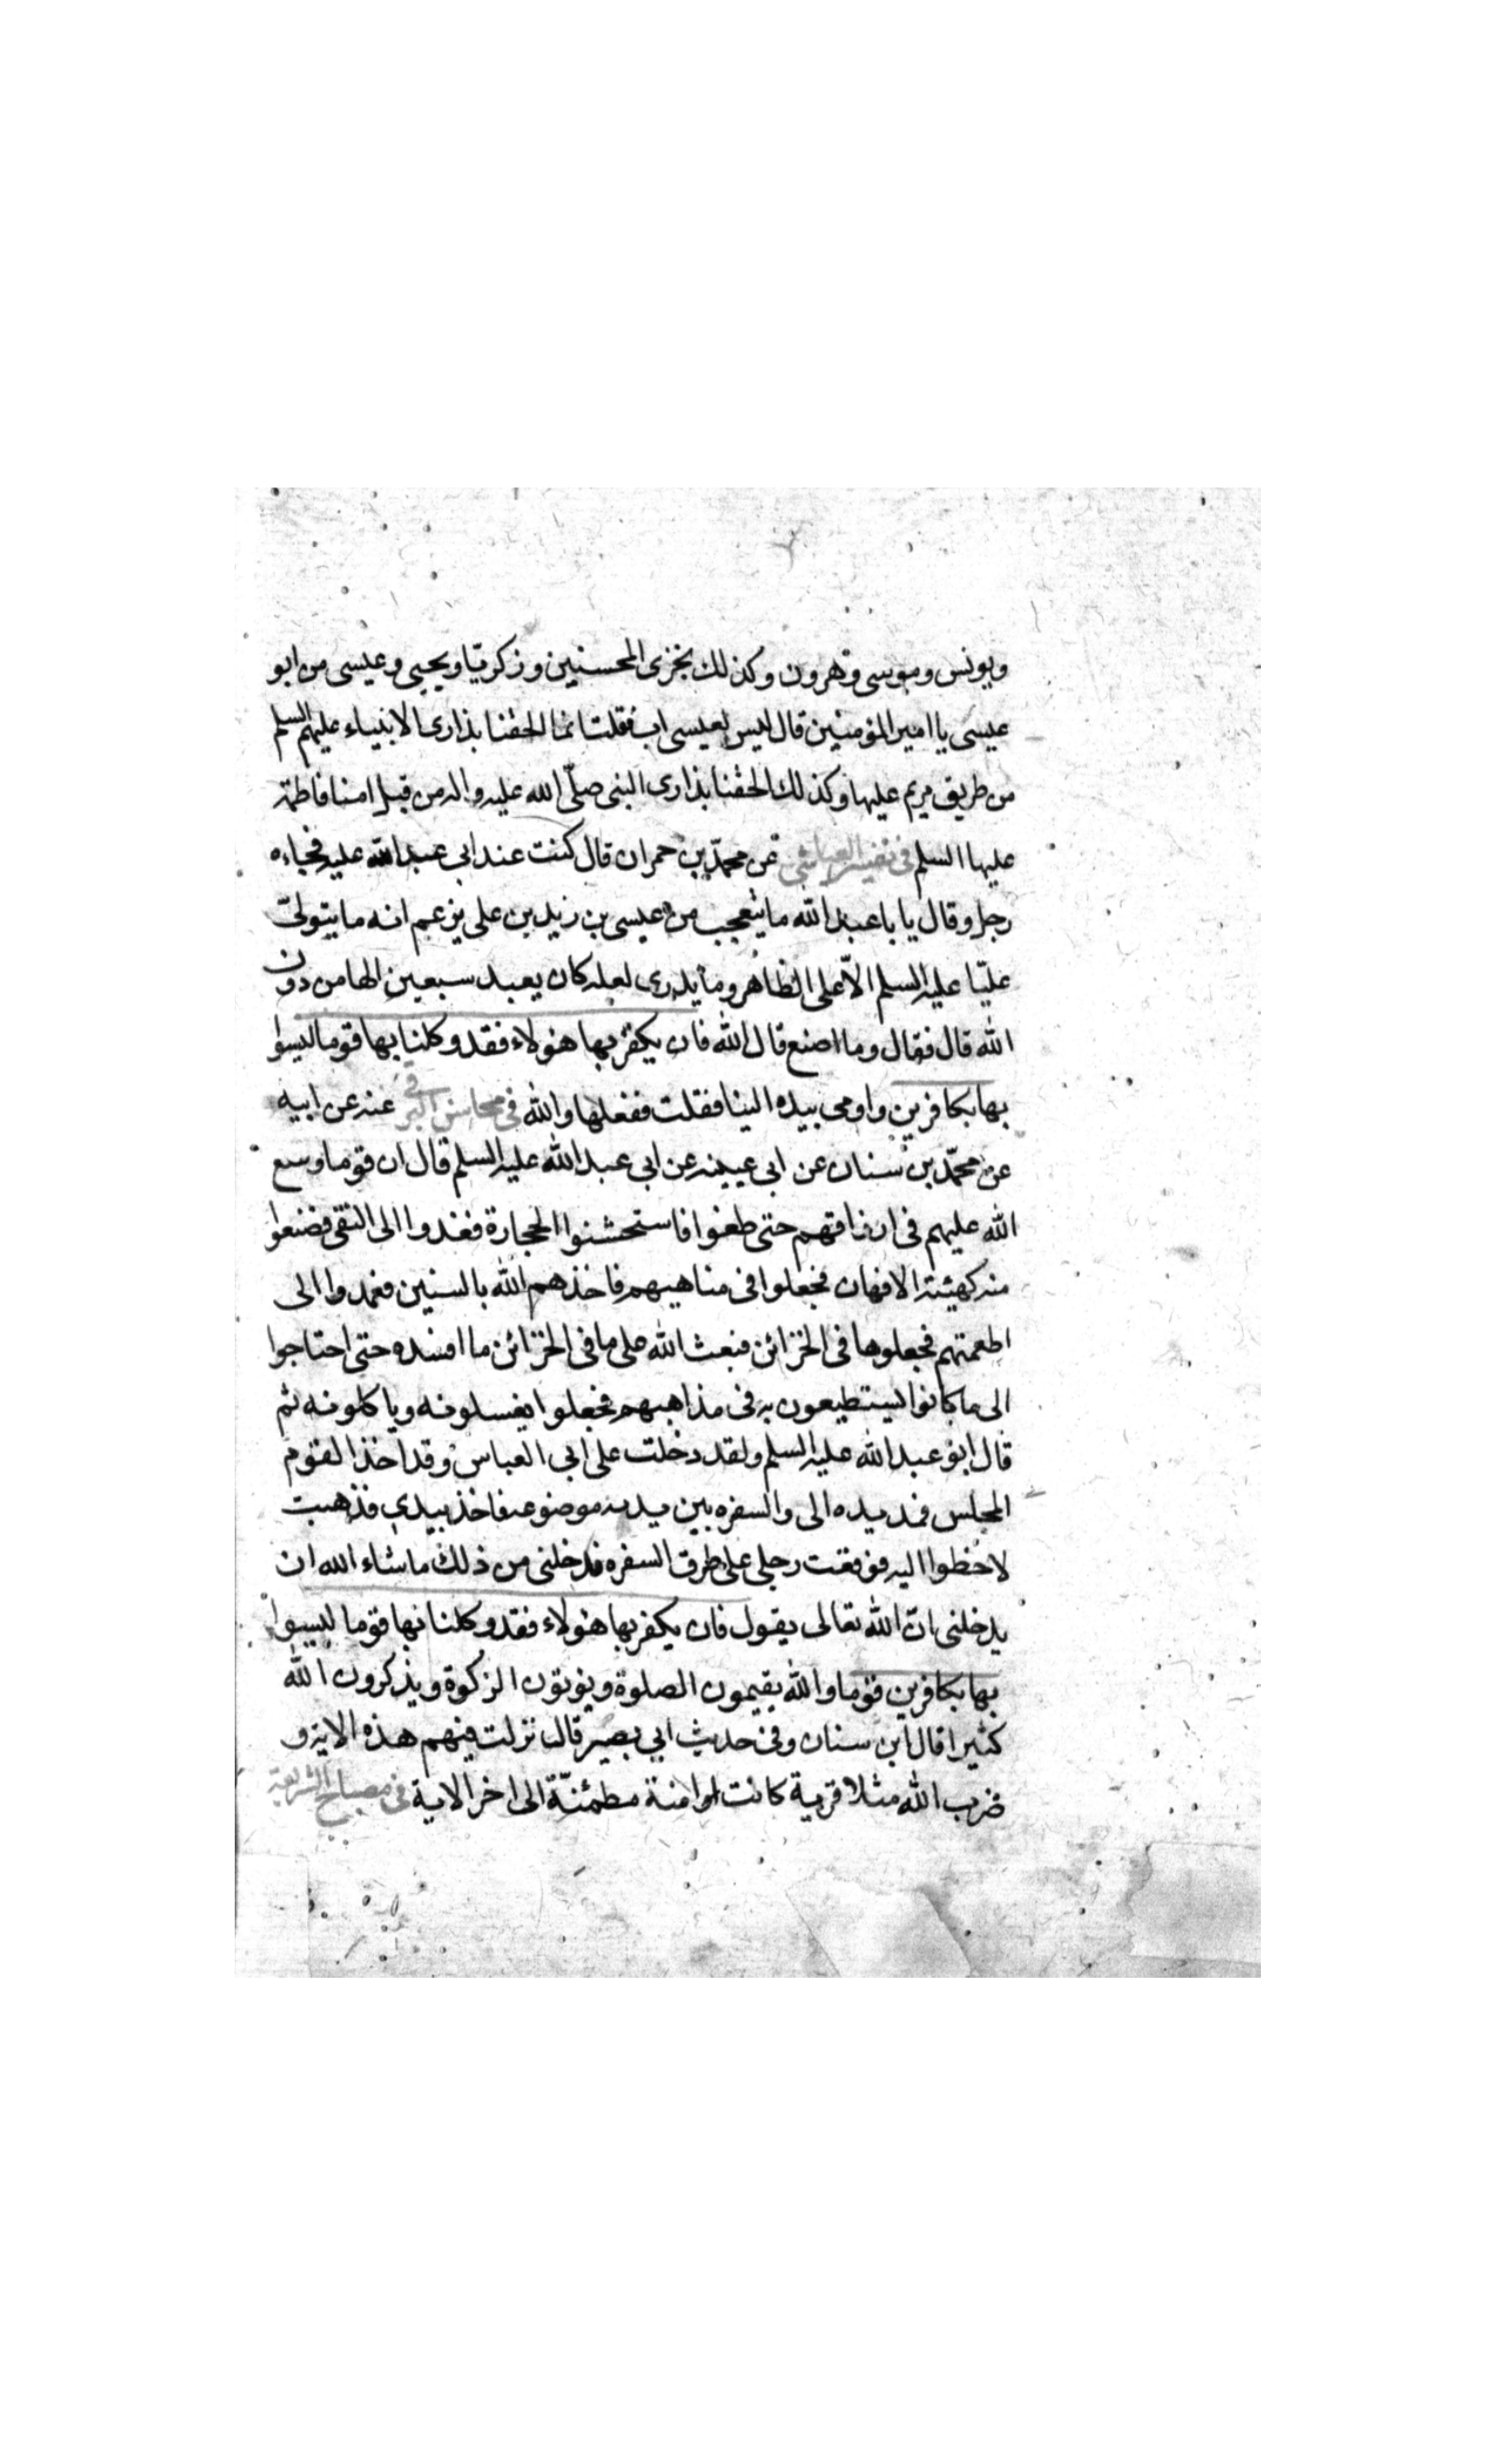 ويونس وموسى وهرون وكذلك نجزى المحسنين وزكريّا ويحيى وعيسى من ابو
عيسى يا امير المؤمنين قال ليس لعيسى اب فقلت انما الحقنا بذارى الانبياء عليهم السلم
من طريق مريم عليها وكذلك الحقنا بذارى النبى صلّى الله عليه واله من قبل امنا فاطمة
عليها السلم فى تفسير العياشى عن محمّد بن حمران قال كنت عند ابى عبد الله عليه فجاءه
رجل وقال يا با عبد الله ما يتعجب من عيسى بن زيد بن على يزعم انه ما يتولىّ
عليّا عليه السلم الاّ على الظاهر وما يدرى لعله كان يعبد سبعين الها من دون
الله قال فقال وما اصنع قال الله فان يكفر بها هؤلاء فقد وكلنا بها قوما ليسوا
بها بكافرين واومى بيده الينا فقلت ففعلها والله فى محاسن البرقى عنه عن ابيه
عن محمّد بن سنان عن ابى عيينه عن ابى عبد الله عليه السلم قال ان قوما وسع
الله عليهم فى ارزاقهم حتى طغوا فاستخشنوا الحجارة فغدوا الى النقى فصنعوا
منه كهيئة الافهان فجعلوا فى مناهيهم فاخذهم الله بالسنين فغمدوا الى
اطعمتهم فجعلوها فى الخزائن فبعث الله على ما فى الخزائن ما افسده حتى احتاجوا
الى ما كانوا يستطيعون به فى مذاهبهم فجعلوا يغسلونه وياكلونه ثم
قال ابو عبد الله عليه السلم ولقد دخلت على ابى العباس وقد اخذ القوم
المجلس فمد يده الى والسفره بين يديه موضوعة فاخذ بيدى فذهبت
لاخطوا اليه فوقعت رجلى على طرف السفره فدخلنى من ذلك ما شاء الله ان
يدخلنى انّ الله تعالى يقول فان يكفر بها هؤلاء فقد وكلنا بها قوما ليسوا
بها بكافرين قوما والله يقيمون الصلوة ويؤتون الزكوة ويذكرون الله
كثيرا قال ابن سنان وفى حديث ابى بصير قال نزلت فيهم هذه الاية و
ضرب الله مثلا قرية كانت امنة مطمئنّة الى اخر الاية فى مصباح الشريعة